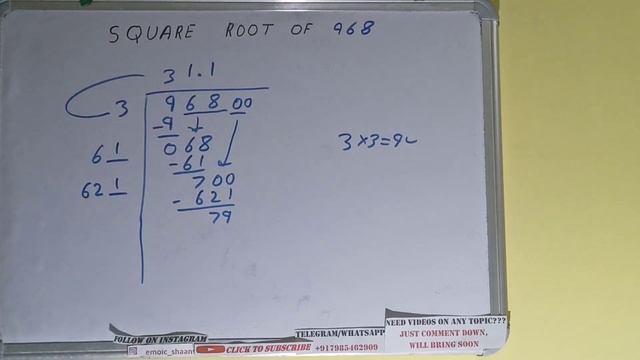 SQUARE ROOT OF 968
3 1.1
3 9 68 00
-9
61 068
-61
621 700
- 621
79
3×3=9
NEED VIDEOS ON ANY TOPIC???
JUST COMMENT DOWN,
WILL BRING SOON
TELEGRAM/WHATSAPP
+917985462909
FOLLOW ON INSTAGRAM
emoic_shaant
CLICK TO SUBSCRIBE